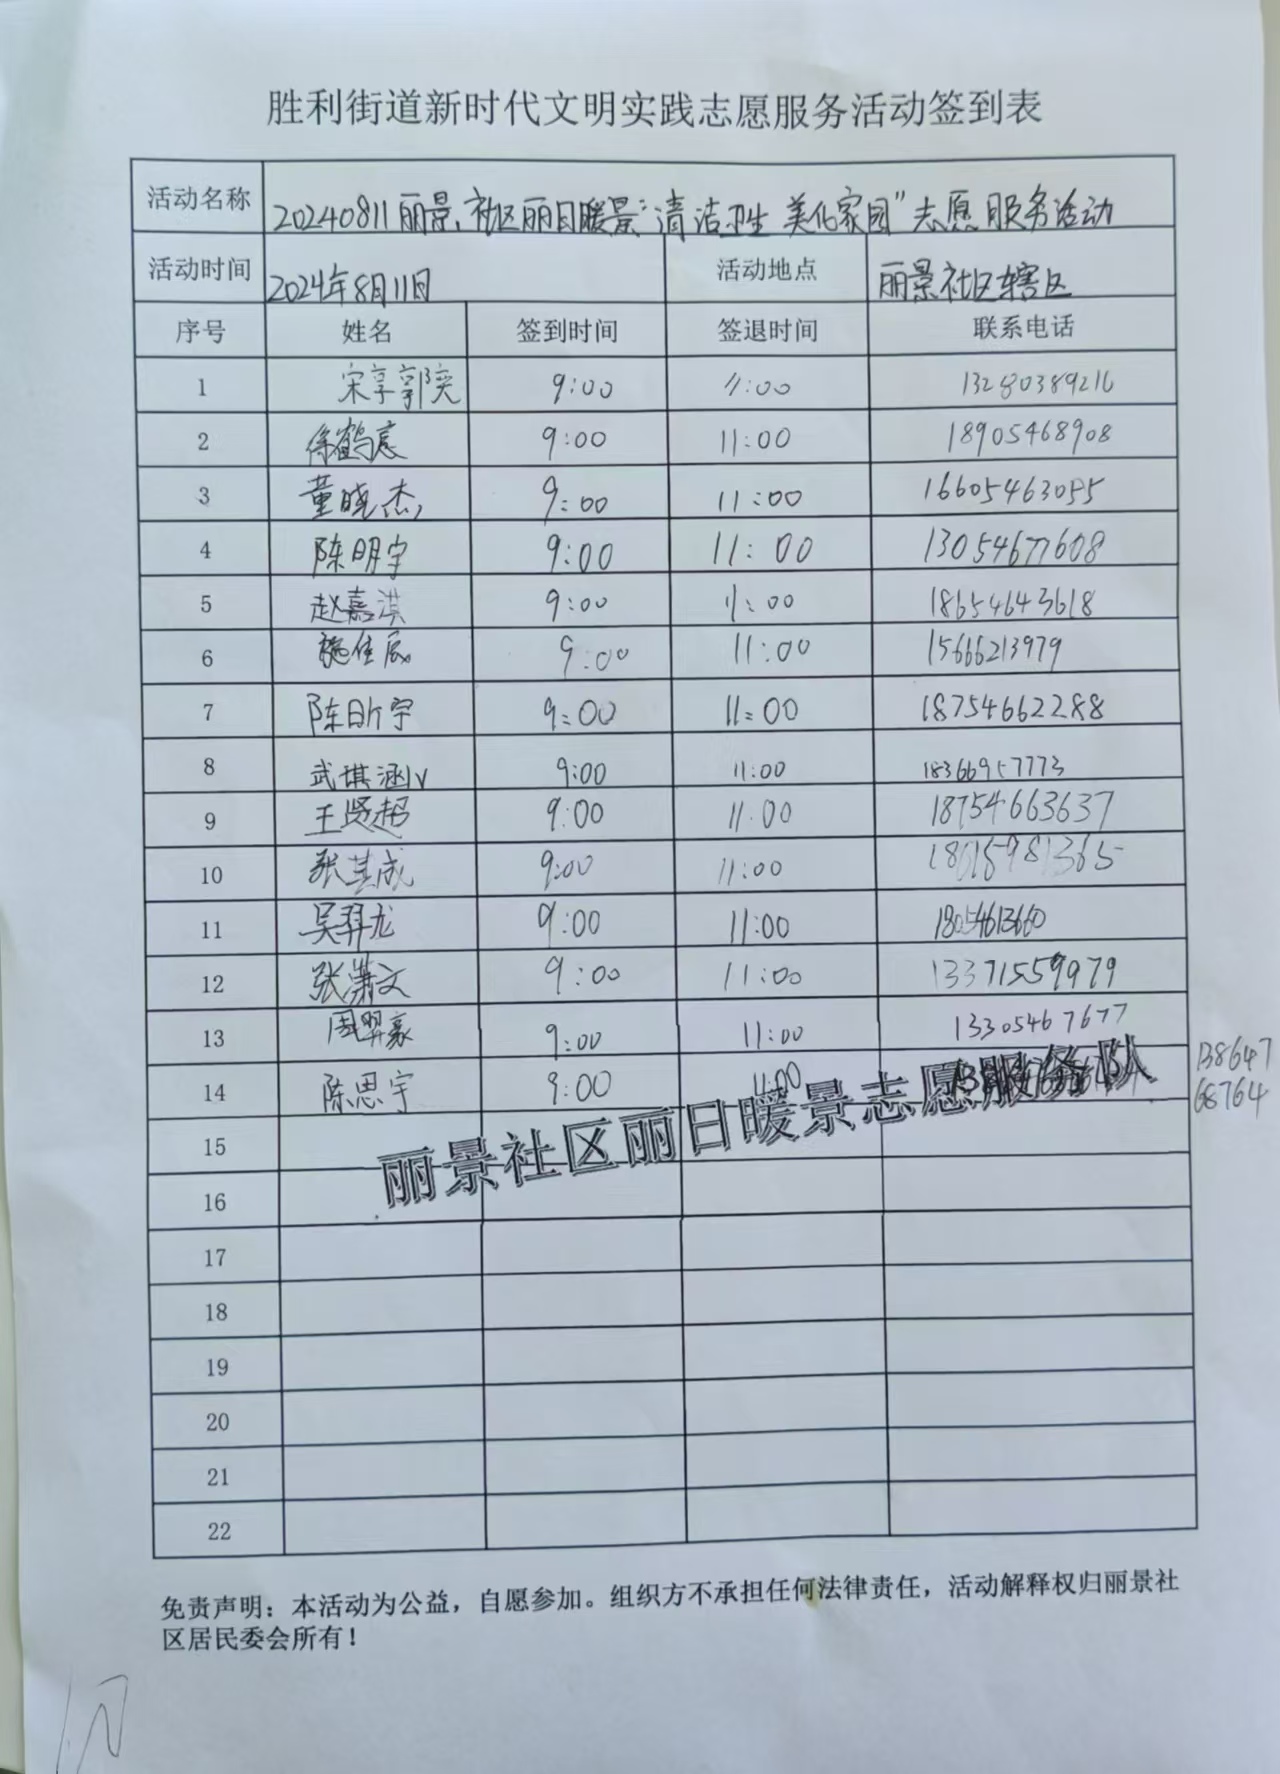 胜利街道新时代文明实践志愿服务活动签到表
活动名称 20240811丽景社区丽日暖景“清洁卫生 美化家园”志愿服务活动
活动时间 2024年8月11日 活动地点 丽景社区辖区
序号 姓名 签到时间 签退时间 联系电话
1 宋享郭奕 9:00 11:00 13280389216
2 徐鹤宸 9:00 11:00 18905468908
3 董晓杰 9:00 11:00 16605463055
4 陈明宇 9:00 11:00 13054677608
5 赵嘉淇 9:00 11:00 18654643618
6 施佳辰 9:00 11:00 15666213979
7 陈昕宇 9:00 11:00 18754662288
8 武琪涵 9:00 11:00 18366957773
9 王贤超 9:00 11:00 18754663637
10 张其成 9:00 11:00
11 吴羿龙 9:00 11:00 18054613660
12 张潇文 9:00 11:00 13371559979
13 周羿豪 9:00 11:00 13305467677
14 陈思宇 9:00 11:00 13864768764
丽景社区丽日暖景志愿服务队
15
16
17
18
19
20
21
22
免责声明：本活动为公益，自愿参加。组织方不承担任何法律责任，活动解释权归丽景社
区居民委会所有！